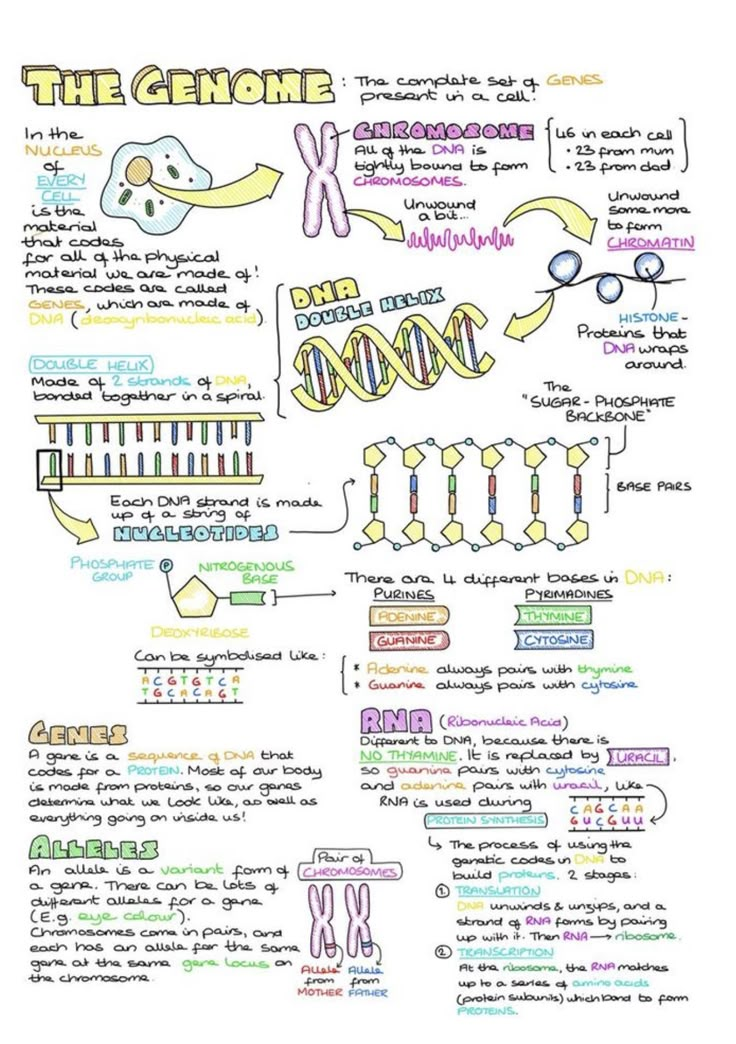 THE GENOME : The complete set of GENES
present in a cell!
In the
NUCLEUS
of
EVERY
CELL
is the
material
that codes
for all of the physical
material we are made of!
These codes are called
GENES, which are made of
DNA (deoxyribonucleic acid).
CHROMOSOME
All of the DNA is
tightly bound to form
CHROMOSOMES.
46 in each cell
• 23 from mum
• 23 from dad
Unwound
a bit...
Unwound
some more
to form
CHROMATIN
HISTONE-
Proteins that
DNA wraps
around.
DNA
DOUBLE HELIX
(DOUBLE HELIX)
Made of 2 strands of DNA,
bonded together in a spiral.
The
"SUGAR-PHOSPHATE
BACKBONE"
BASE PAIRS
Each DNA strand is made
up of a string of
NUCLEOTIDES
PHOSPHATE
GROUP
P
NITROGENOUS
BASE
DEOXYRIBOSE
There are 4 different bases in DNA:
PURINES PYRIMADINES
ADENINE THYMINE
GUANINE CYTOSINE
* Adenine always pairs with thymine
* Guanine always pairs with cytosine
Can be symbolised like:
A C G T G T C A
T G C A C A G T
GENES
A gene is a sequence of DNA that
codes for a PROTEIN. Most of our body
is made from proteins, so our genes
determine what we look like, as well as
everything going on inside us!
ALLELES
An allele is a variant form of
a gene. There can be lots of
different alleles for a gene
(E.g. eye colour).
Chromosomes come in pairs, and
each has an allele for the same
gene at the same gene locus on
the chromosome.
Pair of
CHROMOSOMES
Allele
from
MOTHER
Allele
from
FATHER
RNA (Ribonucleic Acid)
Different to DNA, because there is
NO THYAMINE. It is replaced by URACIL,
so guanine pairs with cytosine
and adenine pairs with uracil, like
C A G C A A
G U C G U U
RNA is used during
PROTEIN SYNTHESIS
↳ The process of using the
genetic codes in DNA to
build proteins. 2 stages:
① TRANSLATION
DNA unwinds & unzips, and a
strand of RNA forms by pairing
up with it. Then RNA → ribosome.
② TRANSCRIPTION
At the ribosome, the RNA matches
up to a series of amino acids
(protein subunits) which bond to form
PROTEINS.